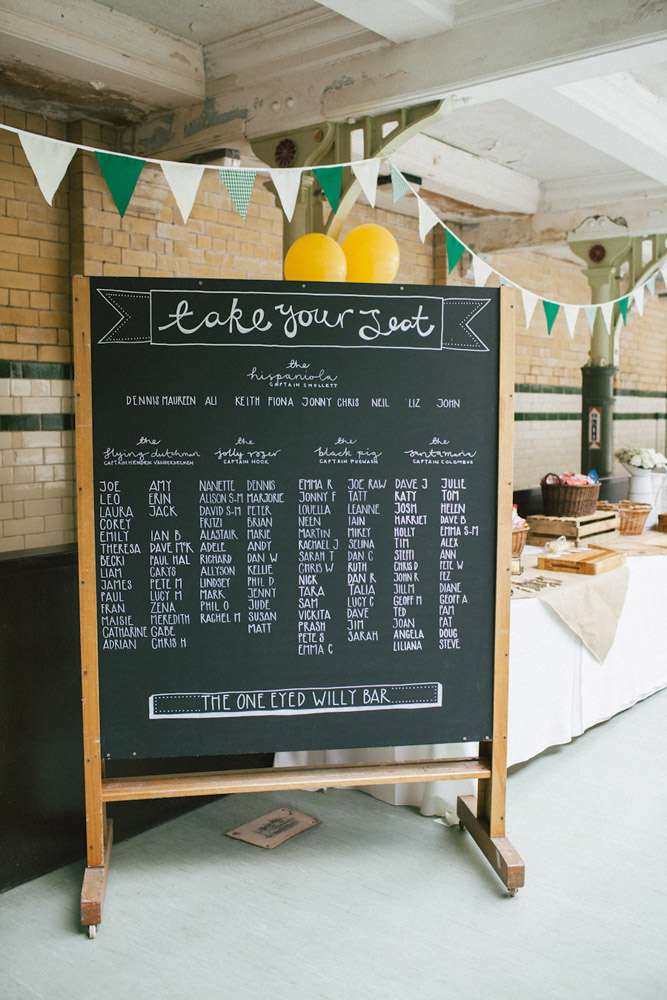 take your seat
the
hispaniola
CAPTAIN SMOLLETT
DENNIS MAUREEN ALI KEITH FIONA JONNY CHRIS NEIL LIZ JOHN
the
flying dutchman
CAPTAIN HENDEN VANDERDECKEN
JOE AMY
LEO ERIN
LAURA JACK
COREY
EMILY IAN B
THERESA DAVE McK
BECKI PAUL HAL
LIAM CARYS
JAMES PETE M
PAUL LUCY M
FRAN ZENA
MAISIE MEREDITH
CATHARINE GABE
ADRIAN CHRIS H
the
jolly roger
CAPTAIN HOOK
NANETTE DENNIS
ALISON S-M MARJORIE
DAVID S-M PETER
FRITZI BRIAN
ALASTAIR MARIE
ADELE ANDY
RICHARD DAN W
ALLYSON KELLIE
LINDSEY PHIL D
MARK JENNY
PHIL O JUDE
RACHEL M SUSAN
MATT
the
black pig
CAPTAIN PUGWASH
EMMA R JOE RAW
JONNY F TATT
LOUELLA LEANINE
NEEN IAIN
MARTIN MIKEY
RACHAEL J SELINA
SARAH T DAN C
CHRIS W RUTH
NICK DAN R
TARA TALIA
SAM LUCY C
VICKITA DAVE
PRASH JIM
PETE S SARAH
EMMA C
the
santamaria
CAPTAIN COLUMBUS
DAVE J JULIE
KATY TOM
JOSH HELEN
HARRIET DAVE B
HOLLY EMMA S-M
TIM ALEX
STEFFI ANN
CHRIS D PETE W
JOHN R FEZ
JILL M DIANE
GEOFF M GEOFF A
TED PAM
JOAN PAT
ANGELA DOUG
LILIANA STEVE
THE ONE EYED WILLY BAR